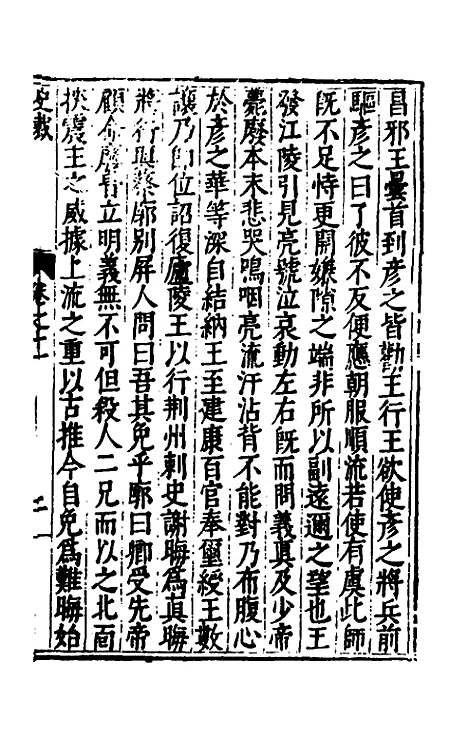 昌邪王曇首到彦之皆勸王行王欲使彦之將兵前
驅彦之曰了彼不反便應朝服順流若使有虞此師
既不足恃更開嫌隙之端非所以副遠邇之望也王
發江陵引見亮號泣哀動左右既而問義眞及少帝
薨廢本末悲哭嗚咽亮流汗沾背不能對乃布腹心
於彦之華等深自結納王至建康百官奉璽綬王數
讓乃即位詔復廬陵王以行荆州刺史謝晦爲眞晦
將行與蔡廓別屏人問曰吾其免乎廓曰卿受先帝
顧命 立明義無不可但殺人二兄而以之北面
挾震主之威據上流之重以古推今自免爲難晦始
史